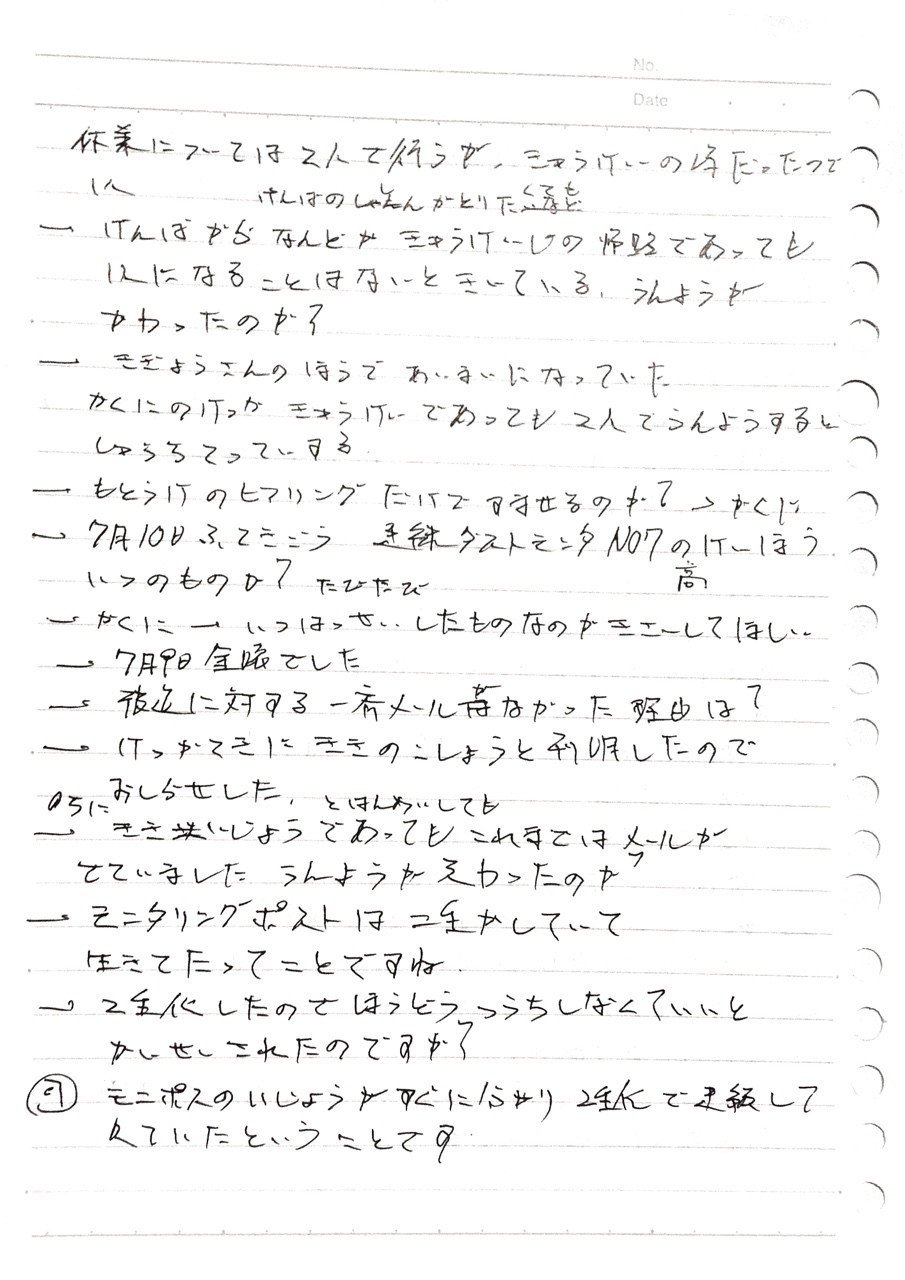 No.
Date
作業については2人で行うが、きゅうけいの時だったので
1人
けんばのしゃしんがとりた
→ けんばからなんどかきゅうけいじの帰路であっても
1人になることはないときいている、うんようが
かわったのか?
→ きぎょうさんのほうであいまいになっていた
かくにのけっか きゅうけいであっても2人でうんようすると
しゅうちてっていする
→ もとうけのヒアリングだけですませるのか? → かくに
→ 7月10日 連続ダストモニタNO7のけいほう
高
いつのものか? たびたび
→ かくに → いつはっせいしたものなのかきさいしてほしい
→ 7月9日金曜でした
→ 報道に対する一斉メールがなかった理由は?
→ けっかてきにききのこしょうと判明したので
おしらせした、
のちに とはんめいしても
→ きき いじょうであってもこれまではメールが
でていました うんようが変わったのか
→ モニタリングポストは二重かしていて
生きてたってことですね
→ 2重化したのでほうどうつうちしなくていいと
かいせいされたのですか?
モニポスのいじょうがすぐに分かり 2重化で連続して
見ていたということです